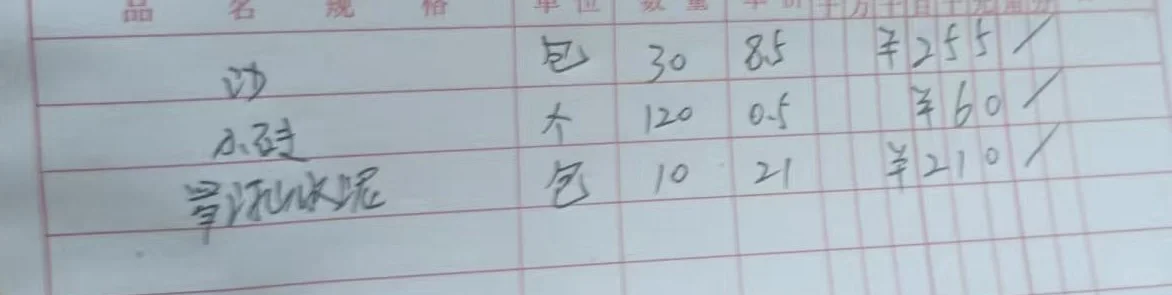 品名规格 单位 数量 单价 千万千百十元角分
沙 包 30 8.5 ¥255/
小砖 个 120 0.5 ¥60/
水泥 包 10 21 ¥210/